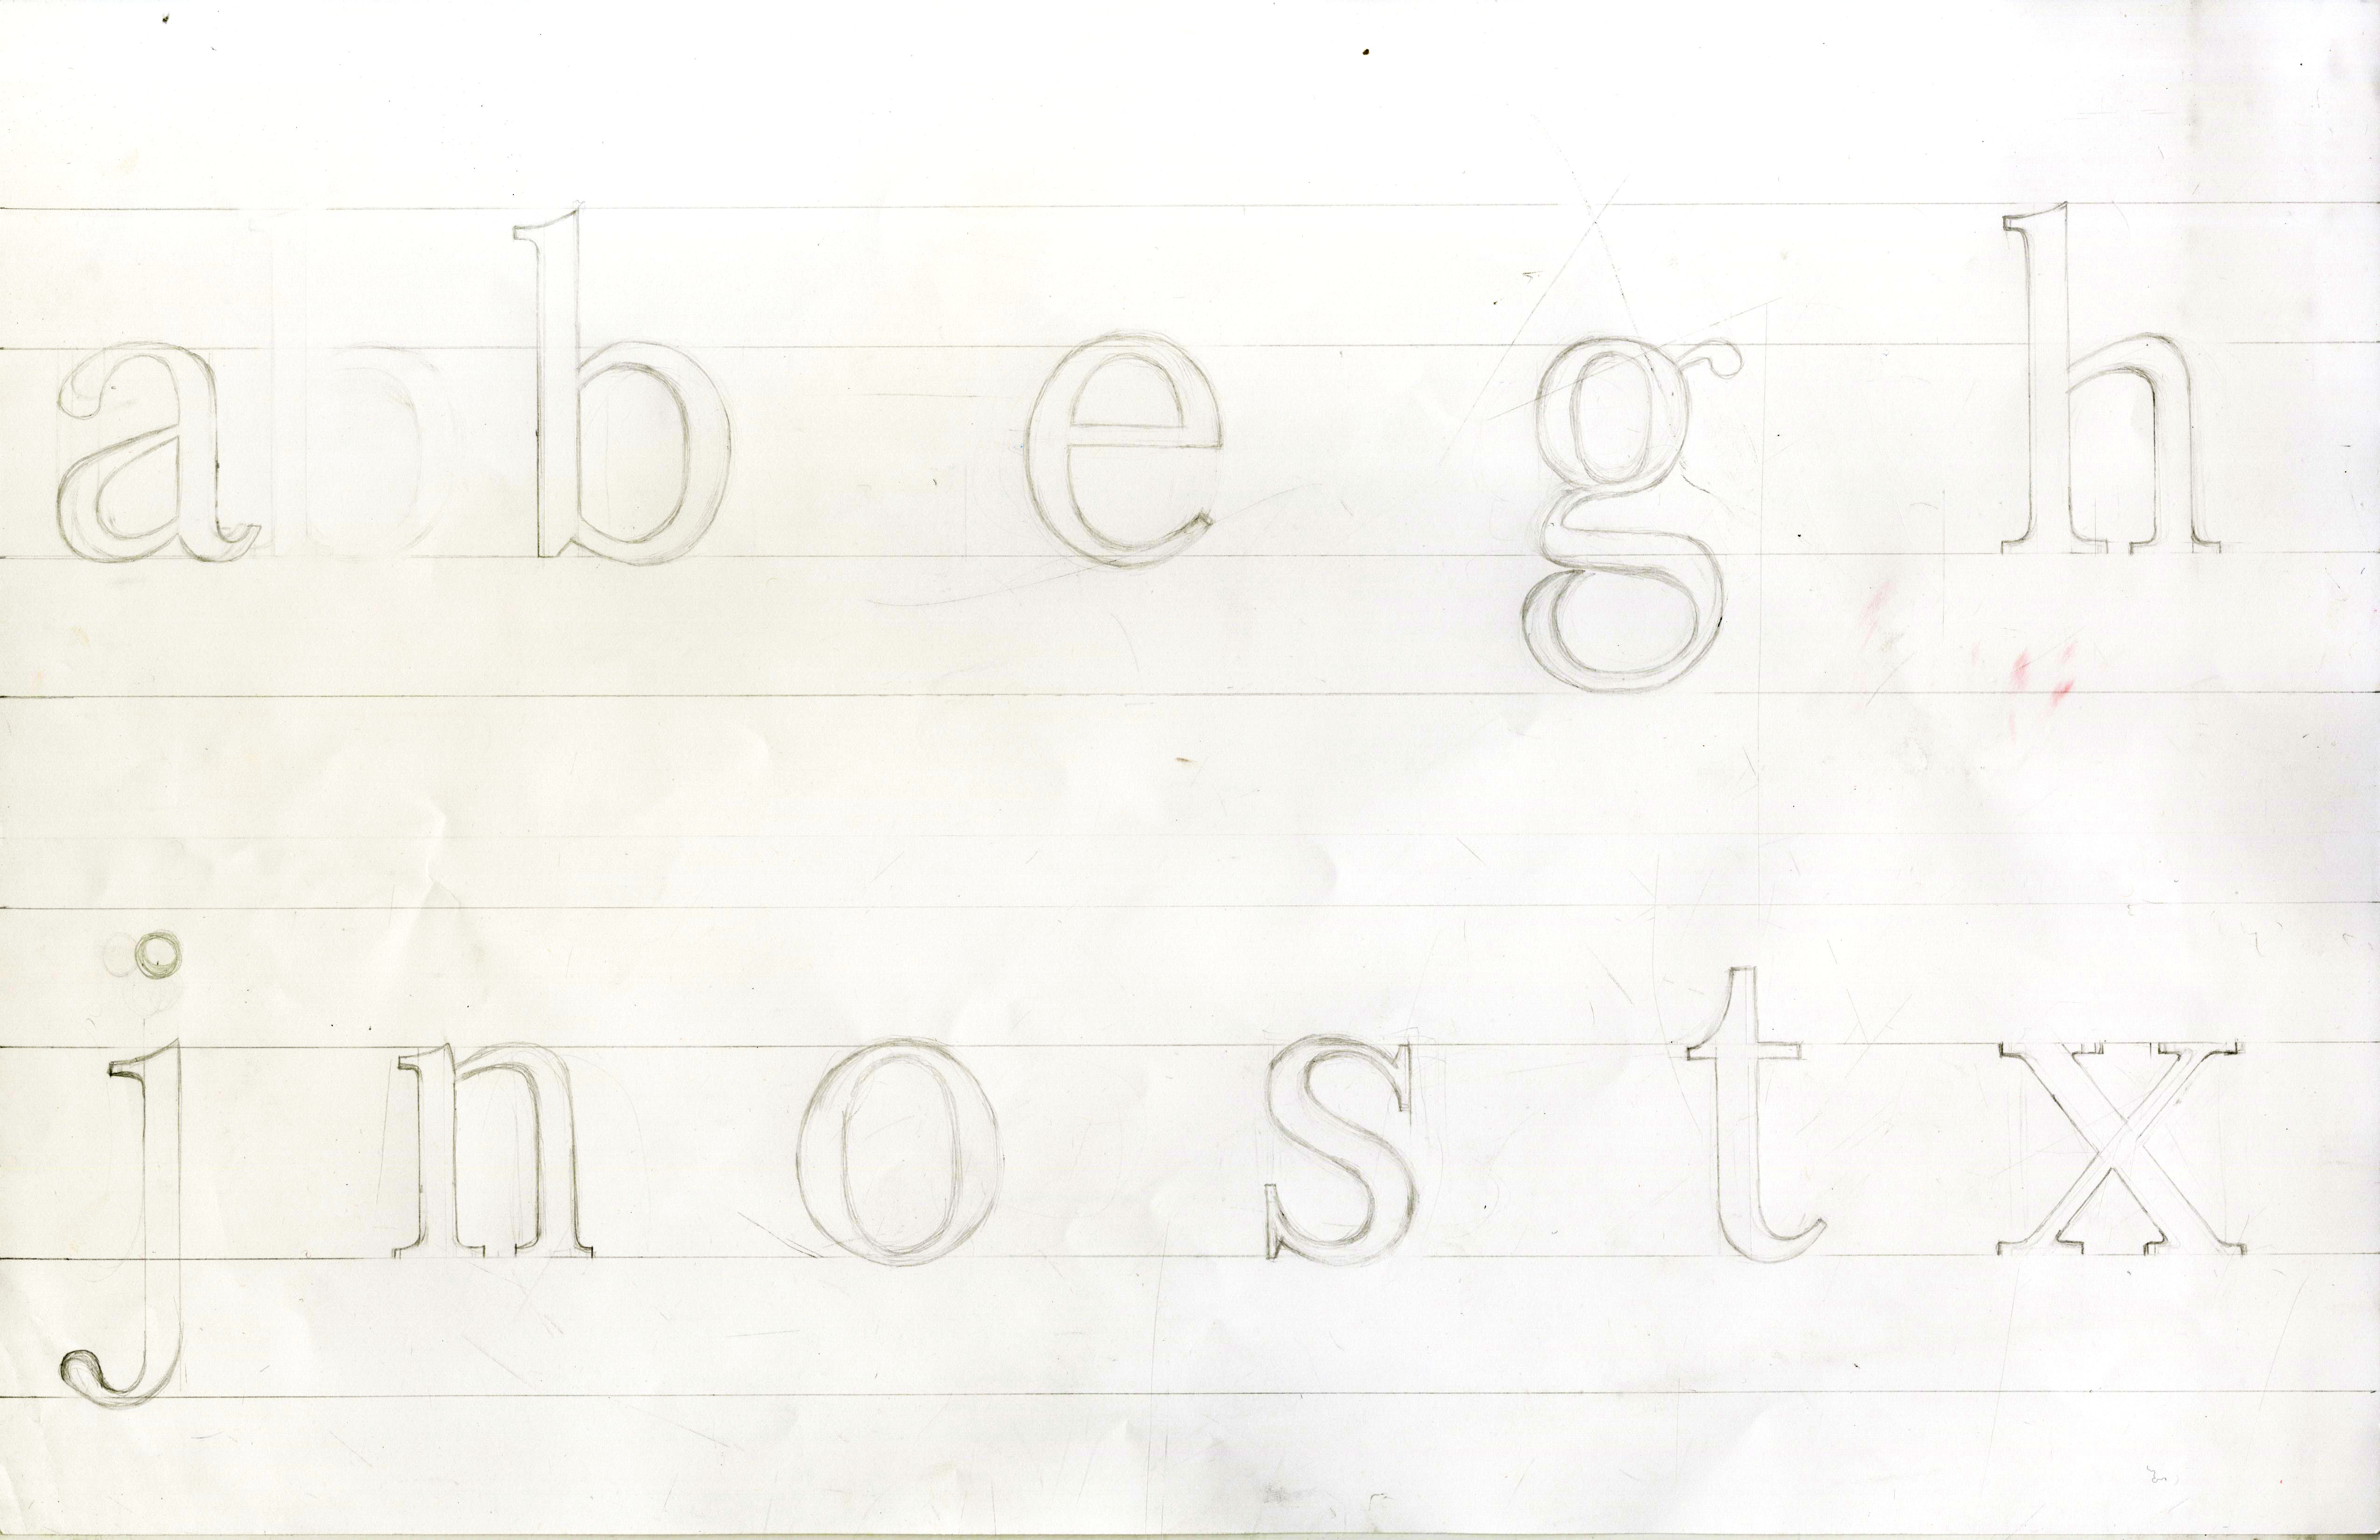 a b e g h
j n o s t x